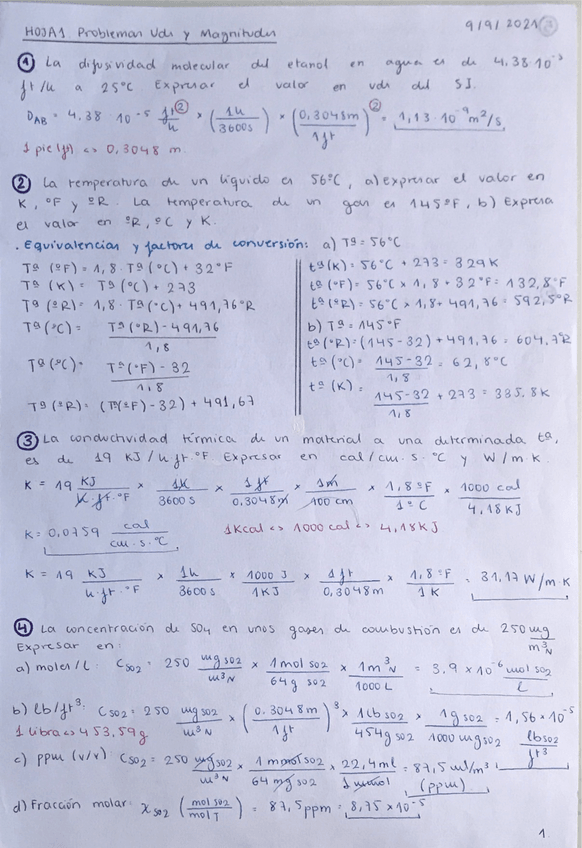 HOJA1 Problemas Uds y Magnitudes
9/9/2021
① La difusividad molecular del etanol en agua es de 4,38·10⁻⁵
ft/h a 25°C Expresar el valor en uds del SI.
D_AB = 4,38 10⁻⁵ ft²/h × (1h/3600s) × (0,3048m/1ft)² = 1,13·10⁻⁹ m²/s
1 pie (ft) <=> 0,3048 m.
② La temperatura de un líquido es 56°C, a) expresar el valor en
K, °F y ºR. La temperatura de un gas es 145ºF, b) Expresa
el valor en ºR, ºC y K.
. Equivalencias y factores de conversión:
Tª (ºF) = 1,8 · Tª (ºC) + 32°F
Tª (K) = Tª (ºC) + 273
Tª (ºR) = 1,8 · Tª (ºC) + 491,76°R
Tª (ºC) = Tª (ºR) - 491,76 / 1,8
Tª (ºC) = Tª (ºF) - 32 / 1,8
Tª (ºR) = (Tª(ºF) - 32) + 491,67
a) Tª = 56°C
tª (K) = 56°C + 273 = 329K
tª (°F) = 56°C × 1,8 + 32°F = 132,8°F
tª (ºR) = 56°C × 1,8 + 491,76 = 592,5ºR
b) Tª = 145°F
tª (ºR) = (145-32) + 491,76 = 604,7ºR
tª (ºC) = 145-32 / 1,8 = 62,8°C
tª (K) = 145-32 / 1,8 + 273 = 335.8K
③ La conductividad térmica de un material a una determinada tª,
es de 19 KJ/h·ft·°F Expresar en cal/cm·s·°C y W/m·K.
K = 19 KJ/h·ft·°F × 1h/3600s × 1ft/0,3048m × 1m/100cm × 1,8°F/1°C × 1000 cal/4,18KJ
K = 0,0759 cal/cm·s·°C
1Kcal <=> 1000 cal <=> 4,18KJ
K = 19 KJ/h·ft·°F × 1h/3600s × 1000 J/1KJ × 1ft/0,3048m × 1,8°F/1K = 31,17 W/m·K
④ La concentración de SO₄ en unos gases de combustión es de 250 mg/m³N
Expresar en:
a) moles/L: C_SO2 = 250 mg SO2/m³N × 1mol SO2/64g SO2 × 1m³N/1000L = 3.9 × 10⁻⁶ mol SO2/L
b) lb/ft³: C_SO2 = 250 mg SO2/m³N × (0.3048m/1ft)³ × 1lb SO2/454g SO2 × 1g SO2/1000mg SO2 = 1,56 × 10⁻⁵ lb SO2/ft³
1 libra <=> 453,59g
c) ppm (v/v) C_SO2 = 250 mg SO2/m³N × 1 mmol SO2/64 mg SO2 × 22,4ml/1mmol = 87,5 ml/m³ (ppm)
d) Fracción molar: X_SO2 (mol SO2/mol T) = 87,5ppm = 8,75 × 10⁻⁵
1.